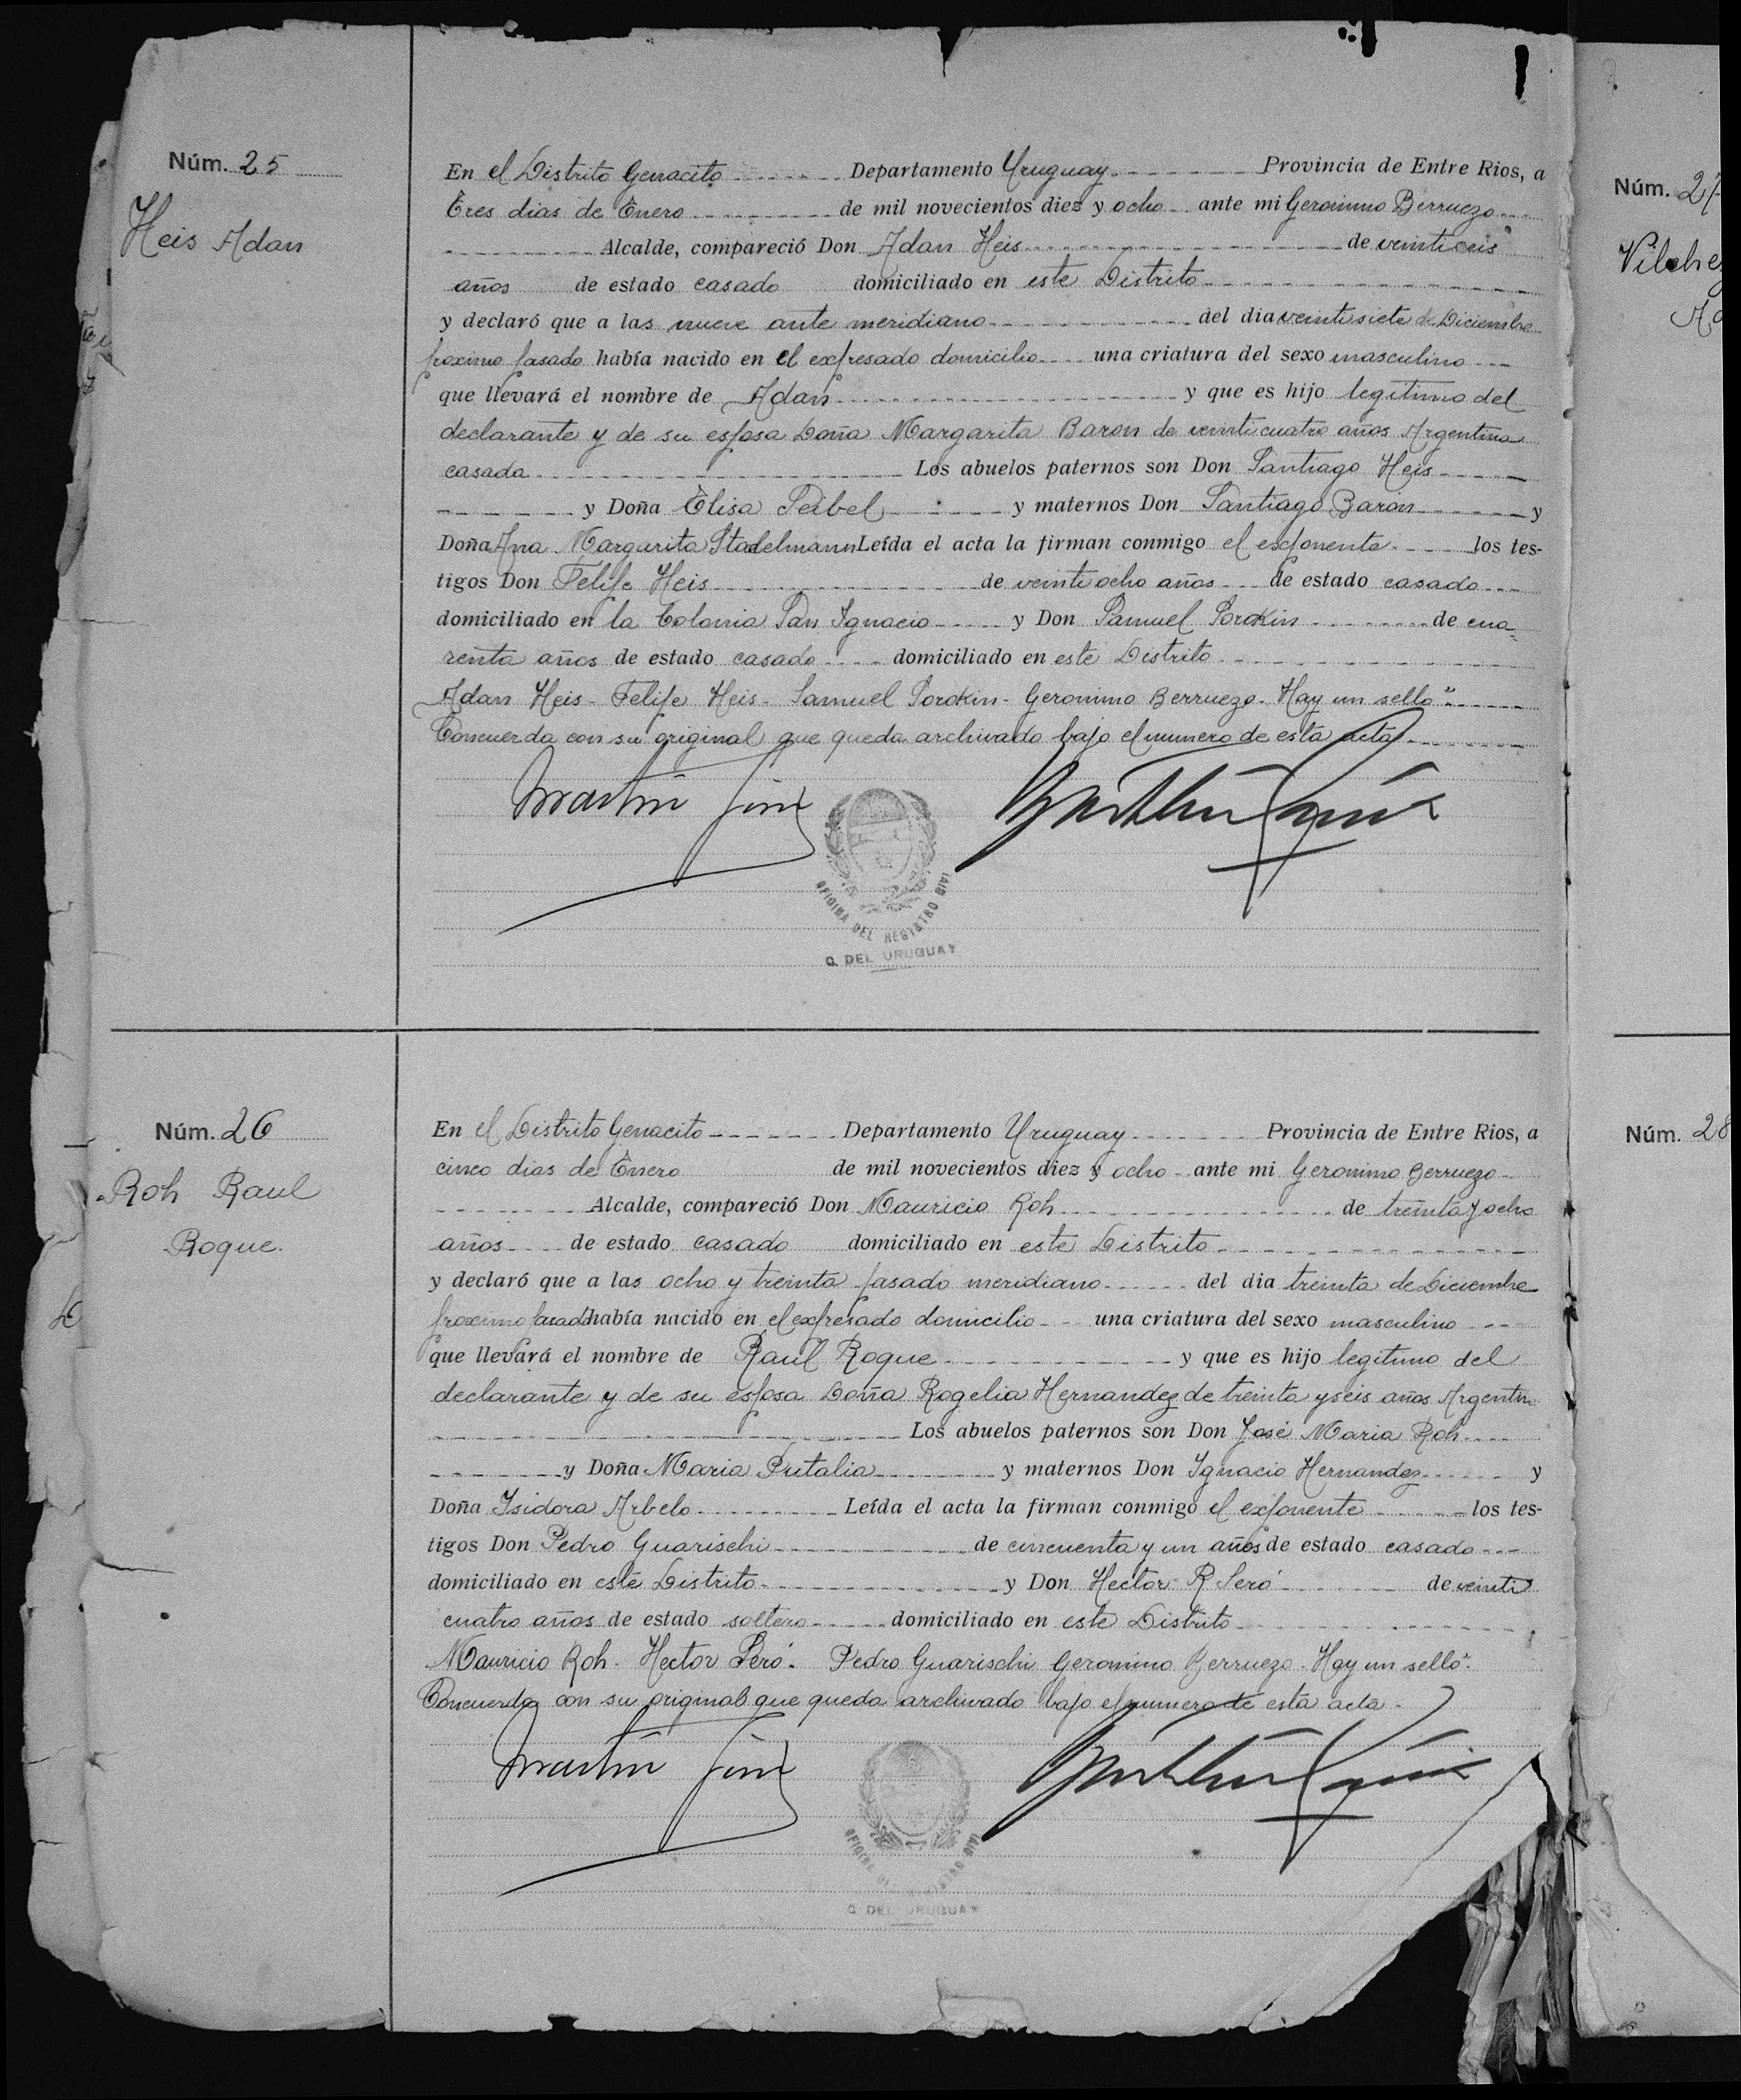 Núm. 25
Heis Adan
En el Distrito Genacito Departamento Uruguay Provincia de Entre Rios, a
tres dias de Enero de mil novecientos diez y ocho ante mi Geronimo Berruezo
Alcalde, compareció Don Adan Heis de veintiseis
años de estado casado domiciliado en este Distrito
y declaró que a las nueve ante meridiano del dia veintisiete de Diciembre
proximo pasado había nacido en el expresado domicilio una criatura del sexo masculino
que llevará el nombre de Adan y que es hijo legitimo del
declarante y de su esposa Doña Margarita Baron de veinticuatro años Argentina
casada Los abuelos paternos son Don Santiago Heis
y Doña Elisa Seibel y maternos Don Santiago Baron y
Doña Ana Margarita Stadelmann Leída el acta la firman conmigo el exponente los tes-
tigos Don Felipe Heis de veintiocho años de estado casado
domiciliado en la Colonia San Ignacio y Don Samuel Sorokin de cua-
renta años de estado casado domiciliado en este Distrito
Adan Heis - Felipe Heis - Samuel Sorokin - Geronimo Berruezo - Hay un sello".
Concuerda con su original que queda archivado bajo el numero de esta acta
Martin
OFICINA DEL REGISTRO CIVIL
C. DEL URUGUAY
Núm. 26
Roh Raul
Roque.
En el Distrito Genacito Departamento Uruguay Provincia de Entre Rios, a
cinco dias de Enero de mil novecientos diez y ocho - ante mi Geronimo Berruezo
Alcalde, compareció Don Mauricio Roh de treinta y ocho
años de estado casado domiciliado en este Distrito
y declaró que a las ocho y treinta pasado meridiano del dia treinta de Diciembre
proximo pasado había nacido en el expresado domicilio una criatura del sexo masculino
que llevará el nombre de Raul Roque y que es hijo legitimo del
declarante y de su esposa Doña Rogelia Hernandez de treinta y seis años Argentina
Los abuelos paternos son Don José Maria Roh
y Doña Maria Pritalia y maternos Don Ignacio Hernandez y
Doña Isidora Arbelo Leída el acta la firman conmigo el exponente los tes-
tigos Don Pedro Guarischi de cincuenta y un años de estado casado
domiciliado en este Distrito y Don Hector R Seró de veinti
cuatro años de estado soltero domiciliado en este Distrito
Mauricio Roh - Hector Seró. Pedro Guarischi Geronimo Berruezo - Hay un sello".
Concuerda con su original que queda archivado bajo el numero de esta acta -
Martin
OFICINA DEL REGISTRO CIVIL
C. DEL URUGUAY
Núm. 27
Vilche
Núm. 28